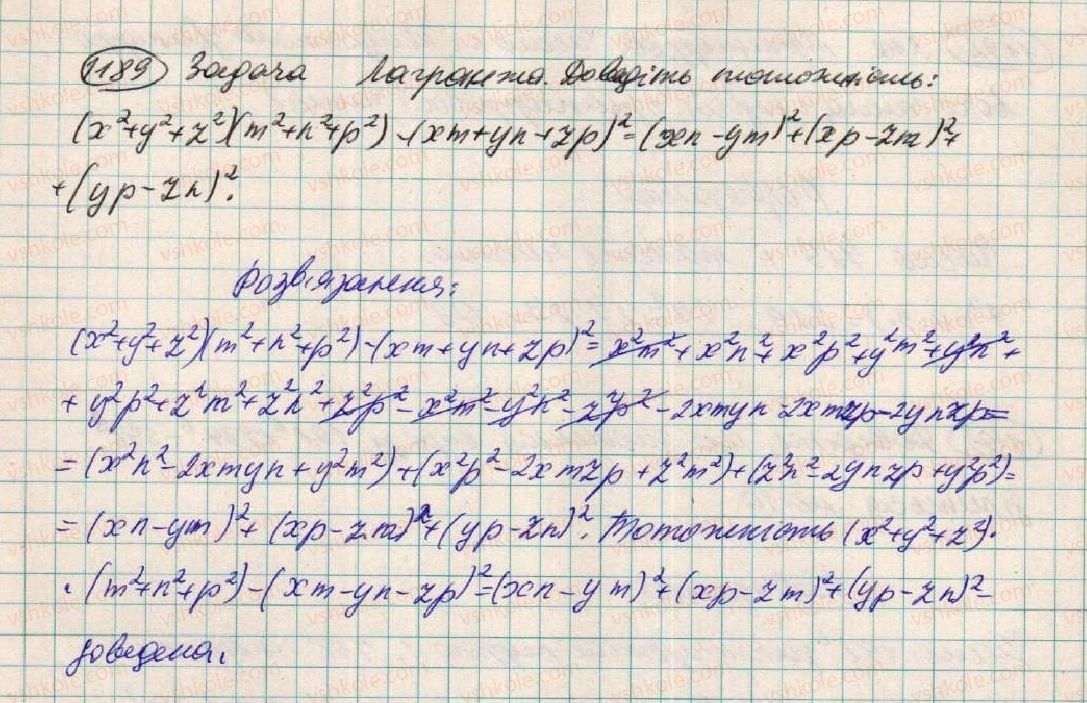 1189 Задача Лагранжа. Доведіть тотожність:
(x²+y²+z²)(m²+n²+p²)-(xm+yn+zp)²=(xn-ym)²+(xp-zm)²+
+(yp-zn)².
Розв'язання:
(x²+y²+z²)(m²+n²+p²)-(xm+yn+zp)²=x²m²+x²n²+x²p²+y²m²+y²n²+
+y²p²+z²m²+z²n²+z²p²-x²m²-y²n²-z²p²-2xmyn-2xmzp-2ynzp=
=(x²n²-2xmyn+y²m²)+(x²p²-2xmzp+z²m²)+(z²n²-2ynzp+y²p²)=
=(xn-ym)²+(xp-zm)²+(yp-zn)². Тотожність (x²+y²+z²)·
·(m²+n²+p²)-(xm-yn-zp)²=(xn-ym)²+(xp-zm)²+(yp-zn)²-
доведена.